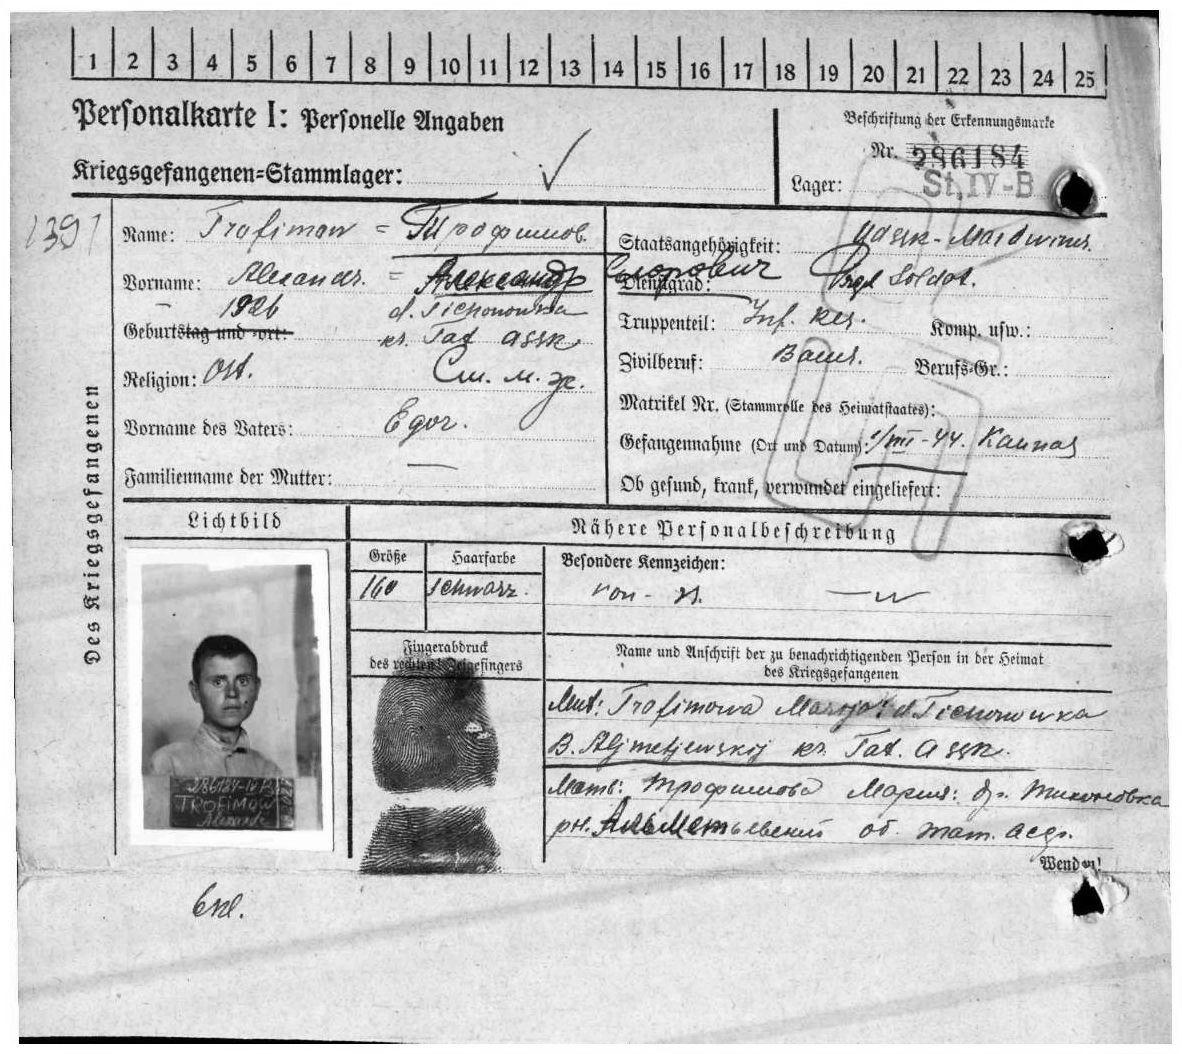 1 2 3 4 5 6 7 8 9 10 11 12 13 14 15 16 17 18 19 20 21 22 23 24 25
Personalkarte I: Personelle Angaben
Kriegsgefangenen=Stammlager:
Beschriftung der Erkennungsmarke
Nr. 286184
Lager: St. IV-B
Des Kriegsgefangenen
Name: Trofimow = Трофимов.
Vorname: Alexander. = Александр Егорович
1926 d. Tichonowka
Geburtstag und -ort: kr. Tat assr.
Religion: Ort. См. м. ж.
Vorname des Vaters: Egor.
Familienname der Mutter: —
Staatsangehörigkeit: Udssr - Mordwine.
Dienstgrad: Soldat.
Truppenteil: Inf. Komp. usw.:
Zivilberuf: Bauer. Berufs-Gr.:
Matrikel Nr. (Stammrolle des Heimatstaates):
Gefangennahme (Ort und Datum): 1/III-44. Kaunas
Ob gesund, krank, verwundet eingeliefert:
Lichtbild
Nähere Personalbeschreibung
Größe
Haarfarbe
Besondere Kennzeichen:
160 schwarz.
Fingerabdruck
des rechten Zeigefingers
Name und Anschrift der zu benachrichtigenden Person in der Heimat
des Kriegsgefangenen
Mut: Trofimowa Marija d. Tichonowka
B. Aljmetjewskij kr. Tat. assr.
Мать: Трофимова Мария: др. Тихоновка
рн. Альметьевский об. тат. асср.
TROFIMOW
Alexander
Wenden!